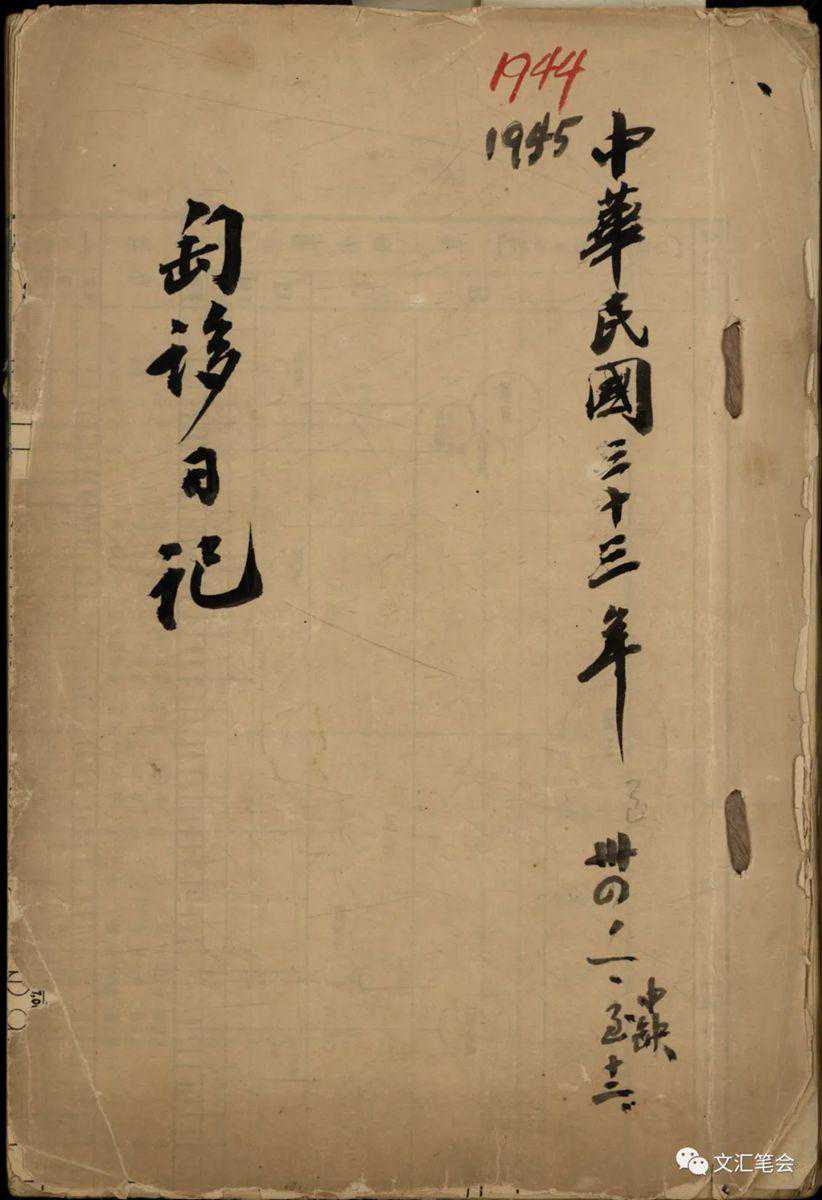 1944
1945
中華民國三十三年
至
卅四、一、至十二
中缺、
匋誃日記
文汇笔会